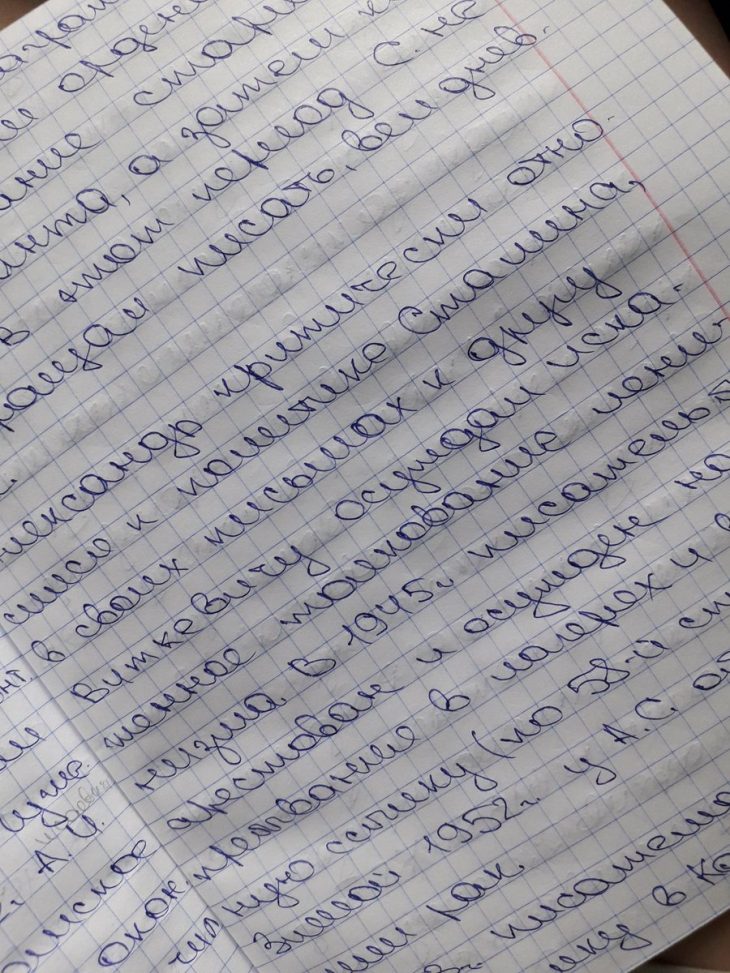 орден
ание стар
анта, а затем к
в этот период С. на
рещал писать, вёл днев.
Александр критически отно-
сился к политике Сталина,
в своих письмах к другу
Виткевичу осуждал иска-
женное толкование лени-
низма. В 1945г. писатель б
арестован и осужден на
пребывание в лагерях и в
ную ссылку (по 58-й ст
Зимой 1952г. у А.С. об
или рак.
писател
в Ка
А.И.
окон.